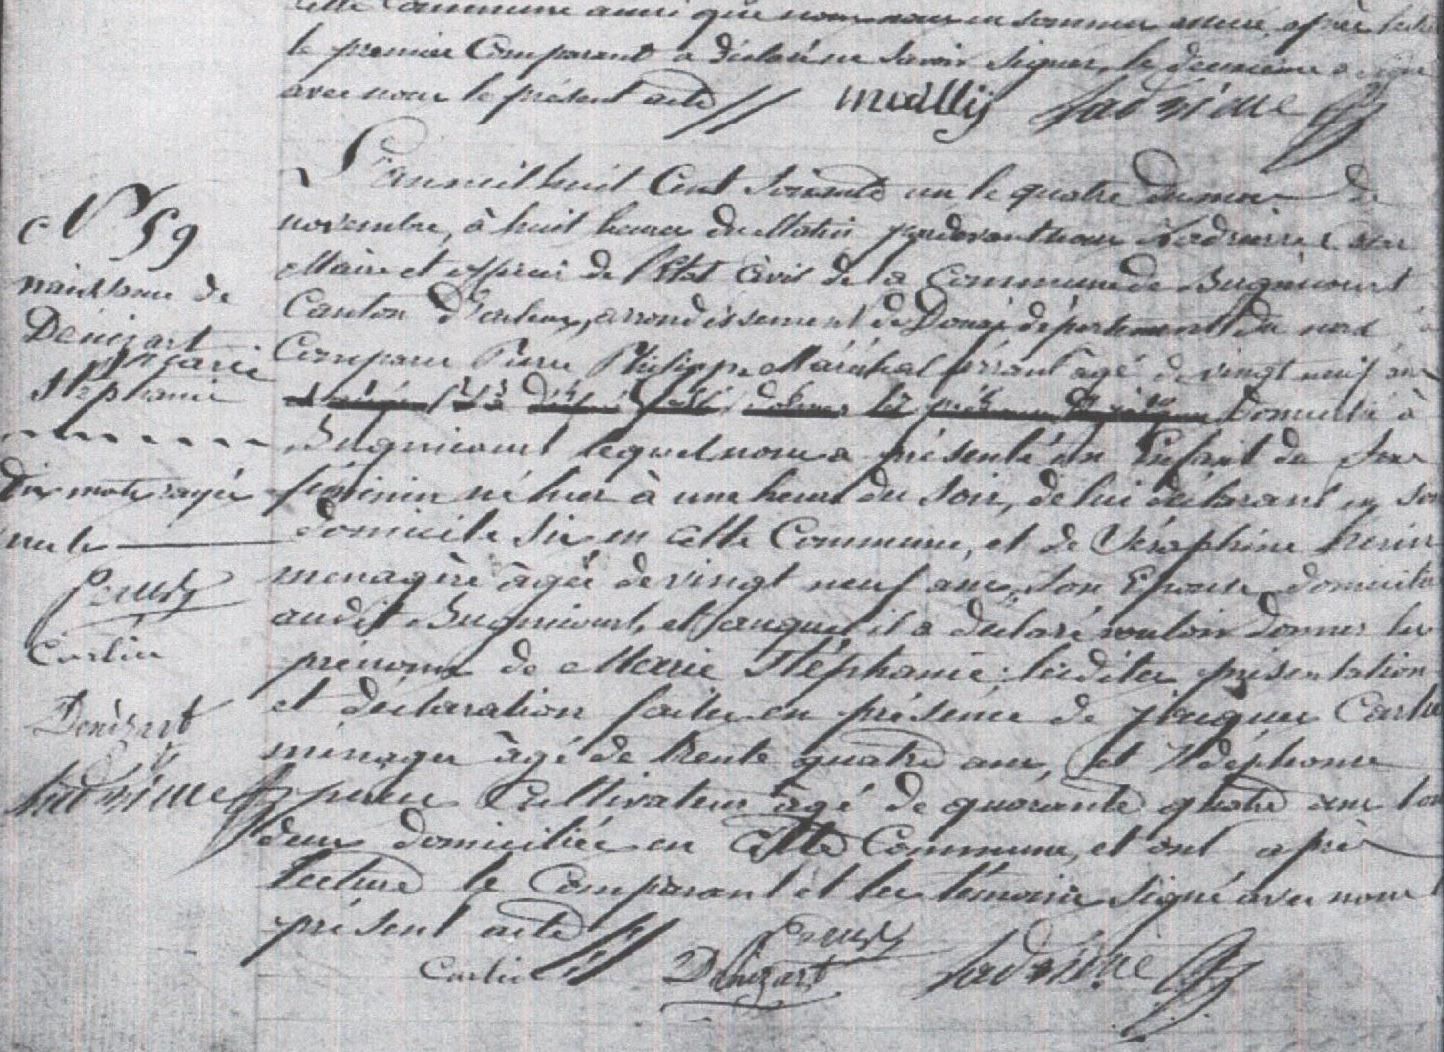 cette Commune ainsi que nous nous en sommes assuré, après lecture
le premier Comparant a déclaré ne savoir signer, le deuxième a signé
avec nous le présent acte
N° 59
naissance de
Dénizart
Marie
Stéphanie
Dix mots rayés
nuls
Carlier
Denizart
L'an mil huit Cent soixante un le quatre du mois de
novembre, à huit heures du Matin pardevant nous
Maire et officier de l'Etat Civil de la Commune de Bugnicourt
Canton d'Arleux, arrondissement de Douai département du nord a
Comparu Pierre Philippe agé de vingt neuf ans
Domicilié à
Bugnicourt lequel nous a présenté un Enfant du Sexe
féminin né hier à une heure du soir, de lui déclarant en son
domicile sis en cette Commune, et de Séraphine
ménagère âgée de vingt neuf ans, son Epouse domiciliée
audit Bugnicourt, et auquel il a déclaré vouloir donner les
prénoms de Marie Stéphanie. lesdites présentation
et déclaration faites en présence de Jacques Carlier
ménager âgé de trente quatre ans, et Ildéphonse
Cultivateur âgé de quarante quatre ans tous
deux domiciliés en Cette Commune, et ont après
lecture le Comparant et les témoins signé avec nous
présent acte
Carlier Denizart